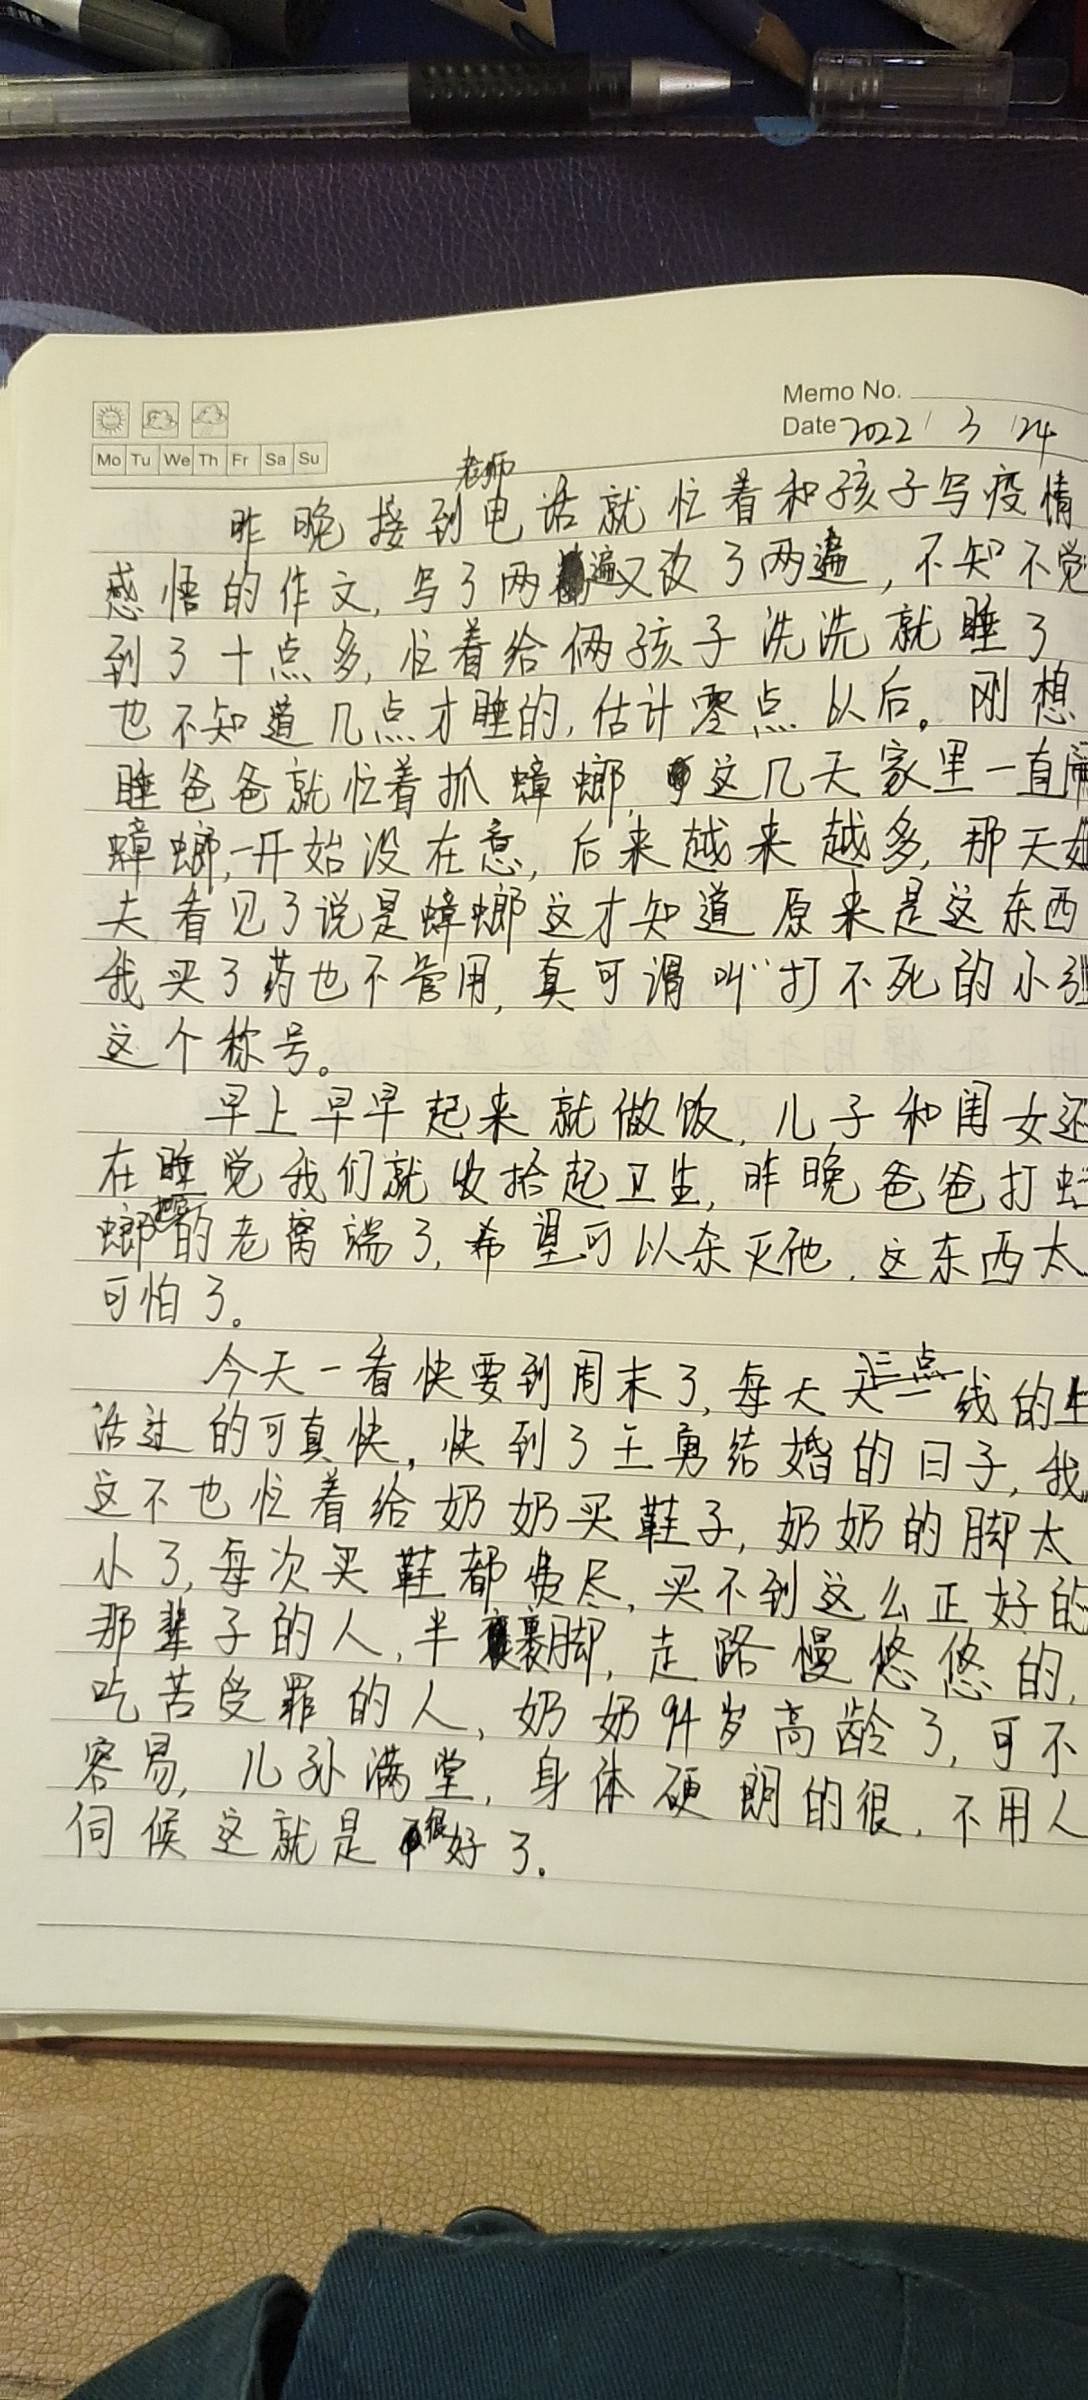 Memo No.
Date 2022 / 3 / 24
Mo Tu We Th Fr Sa Su
昨晚接到老师电话就忙着和孩子写疫情
感悟的作文,写了两遍又改了两遍,不知不觉
到了十点多,忙着给俩孩子洗洗就睡了
也不知道几点才睡的,估计零点以后。刚想
睡爸爸就忙着抓蟑螂,这几天家里一直闹
蟑螂,一开始没在意,后来越来越多,那天
夫看见了说是蟑螂这才知道原来是这东西
我买了药也不管用,真可谓叫“打不死的小强
这个称号。
早上早早起来就做饭,儿子和闺女还
在睡觉我们就收拾起卫生,昨晚爸爸打蟑
螂把它的老窝端了,希望可以杀灭他,这东西太
可怕了。
今天一看快要到周末了,每天三点一线的生
活过的可真快,快到了王勇结婚的日子,我
这不也忙着给奶奶买鞋子,奶奶的脚太
小了,每次买鞋都费尽,买不到这么正好的
那辈子的人,半裹脚,走路慢悠悠的,
吃苦受罪的人,奶奶94岁高龄了,可不
容易,儿孙满堂,身体硬朗的很,不用人
伺候这就是很好了。